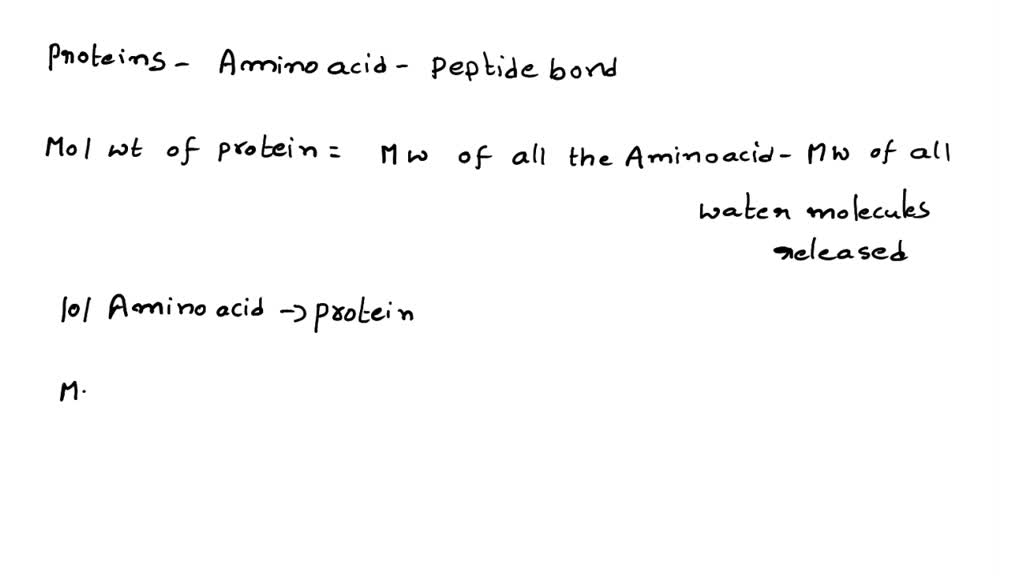 Proteins - Amino acid - peptide bond
Mol wt of protein = Mw of all the Aminoacid - Mw of all
water molecules
released
101 Amino acid -> protein
M.